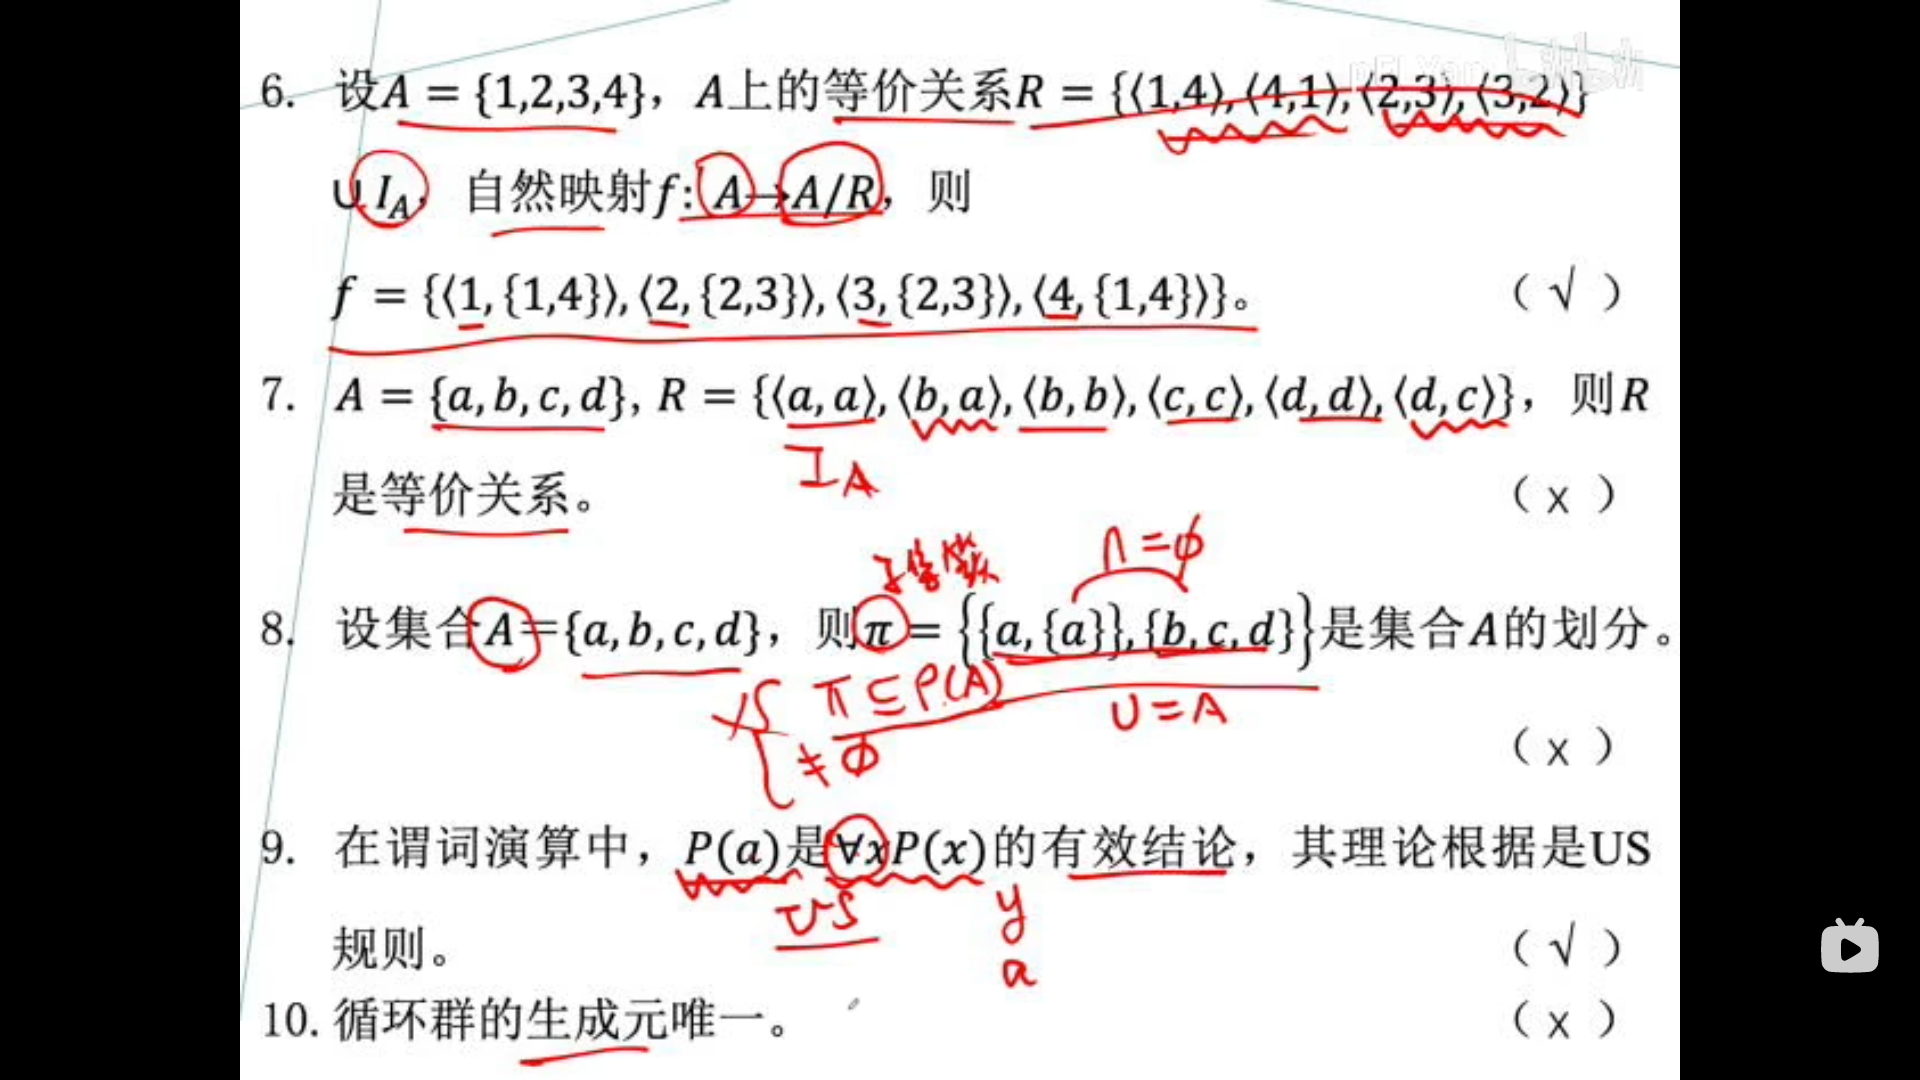 6. 设A = {1,2,3,4}，A上的等价关系R = {⟨1,4⟩,⟨4,1⟩,⟨2,3⟩,⟨3,2⟩}
∪ I_A，自然映射f: A→A/R，则
f = {⟨1,{1,4}⟩,⟨2,{2,3}⟩,⟨3,{2,3}⟩,⟨4,{1,4}⟩}。 （ √ ）
7. A = {a,b,c,d}, R = {⟨a,a⟩,⟨b,a⟩,⟨b,b⟩,⟨c,c⟩,⟨d,d⟩,⟨d,c⟩}，则R
I_A
是等价关系。 （ x ）
∩=ϕ
8. 设集合A={a,b,c,d}，则π = {{a,{a}},{b,c,d}}是集合A的划分。
π⊆P(A)
∪=A
≠ϕ
（ x ）
9. 在谓词演算中，P(a)是∀xP(x)的有效结论，其理论根据是US
US
y
规则。 （ √ ）
a
10. 循环群的生成元唯一。 （ x ）